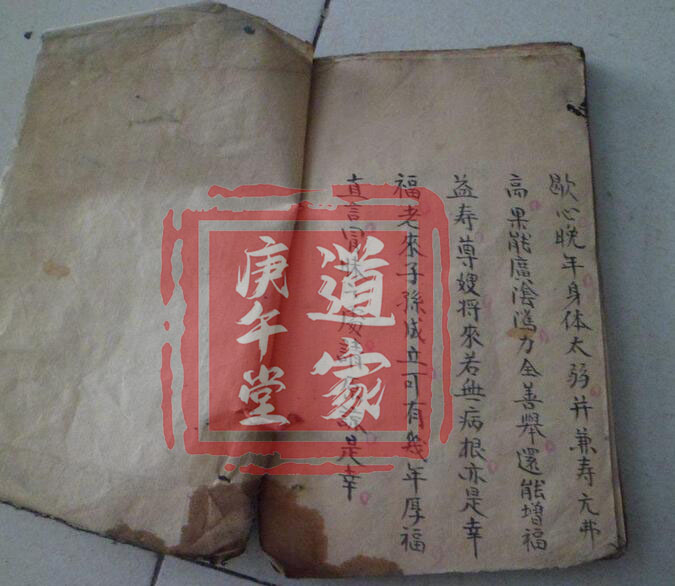 歇心晚年身体太弱并兼寿元弗
高果能廣陰隲力全善舉還能增福
益寿尊嫂将來若無病根亦是幸
福老來子孫成立可有幾年厚福
直言冒 請 是幸
道家
庚午堂